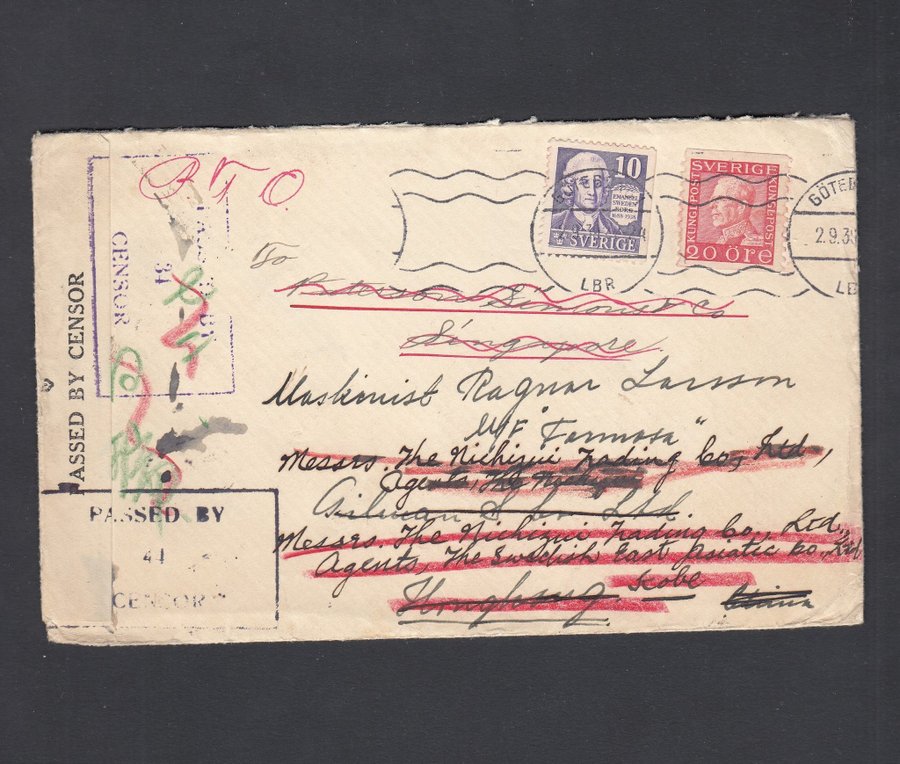 P T O
PASSED BY
34
CENSOR
PASSED BY CENSOR
PASSED BY
41
CENSOR
10
EMANUEL
SWEDEN
BORG
1688-1938
SVERIGE
SVERIGE
KUNGL POST
KUNGL POST
20 ÖRE
LBR
GÖTEB
2.9.39
LB
To
Peterson Simons & Co
Singapore.
Maskinist Ragnar Larsson
M/F. "Formosa"
Messrs. The Nichizui Trading Co., Ltd.,
Agents, The
Gilman & Co Ltd.
Messrs. The Nichizui Trading Co., Ltd.,
Agents, The Swedish East Asiatic Co., Ltd
Kobe
Hongkong.
China